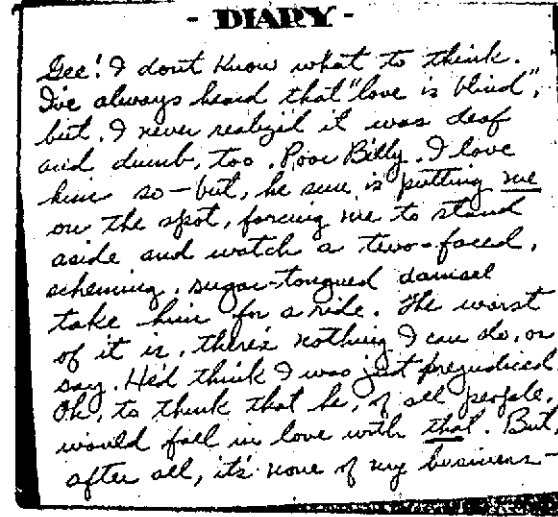 - DIARY -
Gee! I dont know what to think.
I've always heard that "love is blind",
but, I never realized it was deaf
and dumb, too. Poor Billy. I love
him so - but, he sure is putting me
on the spot, forcing me to stand
aside and watch a two-faced,
scheming, sugar-tongued damsel
take him for a ride. The worst
of it is, there's nothing I can do, or
say. He'd think I was just prejudiced.
Oh, to think that he, of all people,
would fall in love with that. But,
after all, it's none of my business -